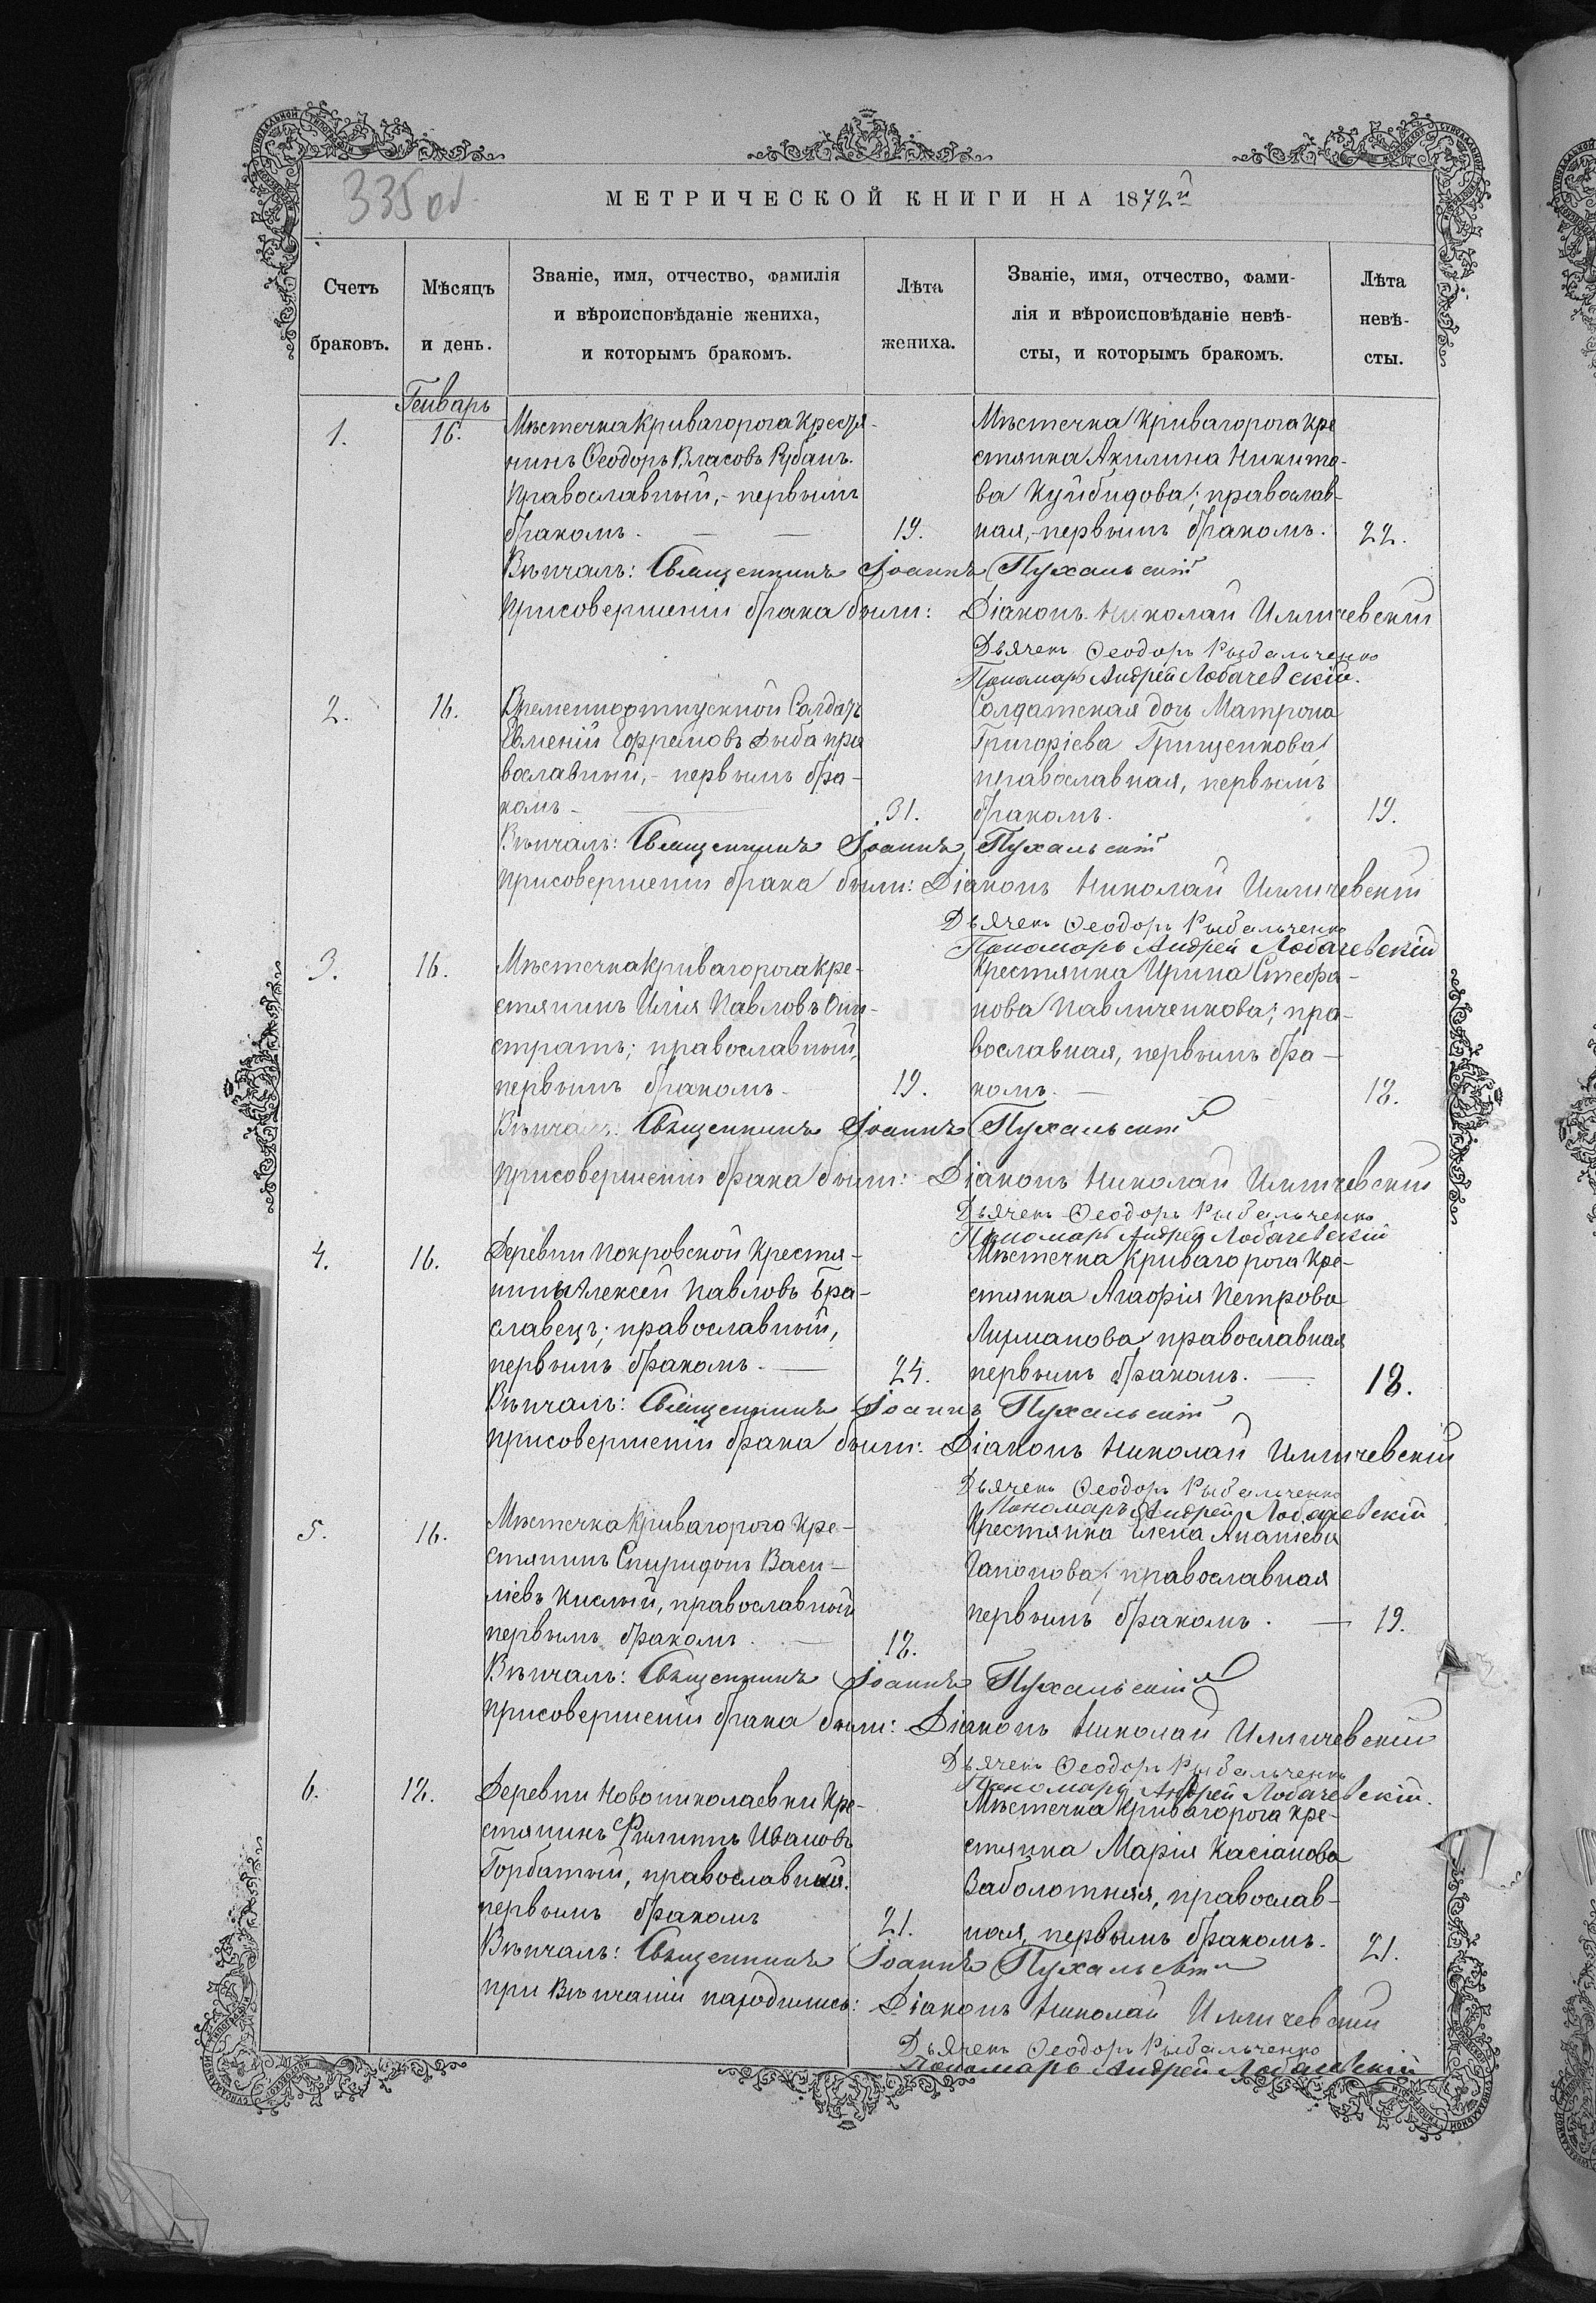 335 об
МЕТРИЧЕСКОЙ КНИГИ НА 1872й
Счетъ
браковъ.
Мѣсяцъ
и день.
Званіе, имя, отчество, фамилія
и вѣроисповѣданіе жениха,
и которымъ бракомъ.
Лѣта
жениха.
Званіе, имя, отчество, фами-
лія и вѣроисповѣданіе невѣ-
сты, и которымъ бракомъ.
Лѣта
невѣ-
сты.
Генварь
1.
16.
Мѣстечка Кривагорога Крестя-
нинъ Ѳеодоръ Власовъ Рубанъ.
Православный,- первымъ
бракомъ.
19.
Мѣстечка Кривагорога Кре
стянка Акилина Никито-
ва Куйбидова; православ-
ная,-первымъ бракомъ.
22.
Вѣнчалъ: Священникъ Іоаннъ Пухальскій
При совершеніи брака были: Діаконъ Николай Илличевскій
Дьячекъ Ѳеодоръ Рыбальченко
Пономарь Андрей Лобачевскій.
2.
16.
Временноотпускной Солдатъ
Евменій Ефремовъ Дыба пра
вославный,- первымъ бра-
комъ-
31.
Солдатская дочь Матрона
Григоріева Грищенкова,
православная, первымъ
бракомъ.
19.
Вѣнчалъ: Священникъ Іоаннъ Пухальскій
При совершеніи брака были: Діаконъ Николай Илличевскій
Дьячекъ Ѳеодоръ Рыбальченко
Пономарь Андрей Лобачевскій
3.
16.
Мѣстечка Кривагорога Кре-
стянинъ Илія Павловъ
православный,
первымъ бракомъ-
19.
Крестянка Ирина Стефа-
нова Павличенкова; пра-
вославная, первымъ бра-
комъ.
18.
Вѣнчалъ: Священникъ Іоаннъ Пухальскій
При совершеніи брака были: Діаконъ Николай Илличевскій
Дьячекъ Ѳеодоръ Рыбальченко
Пономарь Андрей Лобачевскій
4.
16.
Деревни Покровской Крестя-
нинъ Алексей Павловъ Бра-
славецъ; православный,
первымъ бракомъ.
24.
Мѣстечка Кривагорога Кре-
стянка Агафія Петрова
православная
первымъ бракомъ.
18.
Вѣнчалъ: Священникъ Іоаннъ Пухальскій
При совершеніи брака были: Діаконъ Николай Илличевскій
Дьячекъ Ѳеодоръ Рыбальченко
Пономарь Андрей Лобачевскій
5.
16.
Мѣстечка Кривагорога Кре-
стянинъ Спиридонъ Васи-
ліевъ Кислый, православный
первымъ бракомъ.
18.
Крестянка Елена Ананіева
Гапонова, православная
первымъ бракомъ.
19.
Вѣнчалъ: Священникъ Іоаннъ Пухальскій
При совершеніи брака были: Діаконъ Николай Илличевскій
Дьячекъ Ѳеодоръ Рыбальченко
Пономарь Андрей Лобачевскій.
6.
18.
Деревни Новониколаевки Кре-
стянинъ Филиппъ Ивановъ
Горбатый, православный.
первымъ бракомъ
21.
Мѣстечка Кривагорога Кре-
стянка Марія Касіанова
Заболотняя, православ-
ная, первымъ бракомъ.
21.
Вѣнчалъ: Священникъ Іоаннъ Пухальскій
при Вѣнчаніи находились: Діаконъ Николай Илличевскій
Дьячекъ Ѳеодоръ Рыбальченко
Пономарь Андрей Лобачевскій